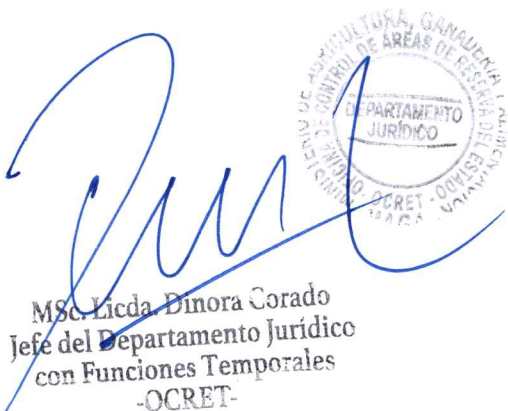 MINISTERIO DE AGRICULTURA, GANADERÍA Y ALIMENTACIÓN
OFICINA DE CONTROL DE AREAS DE RESERVA DEL ESTADO
DEPARTAMENTO
JURÍDICO
-OCRET-
MAGA
MSc. Licda. Dinora Corado
Jefe del Departamento Jurídico
con Funciones Temporales
-OCRET-